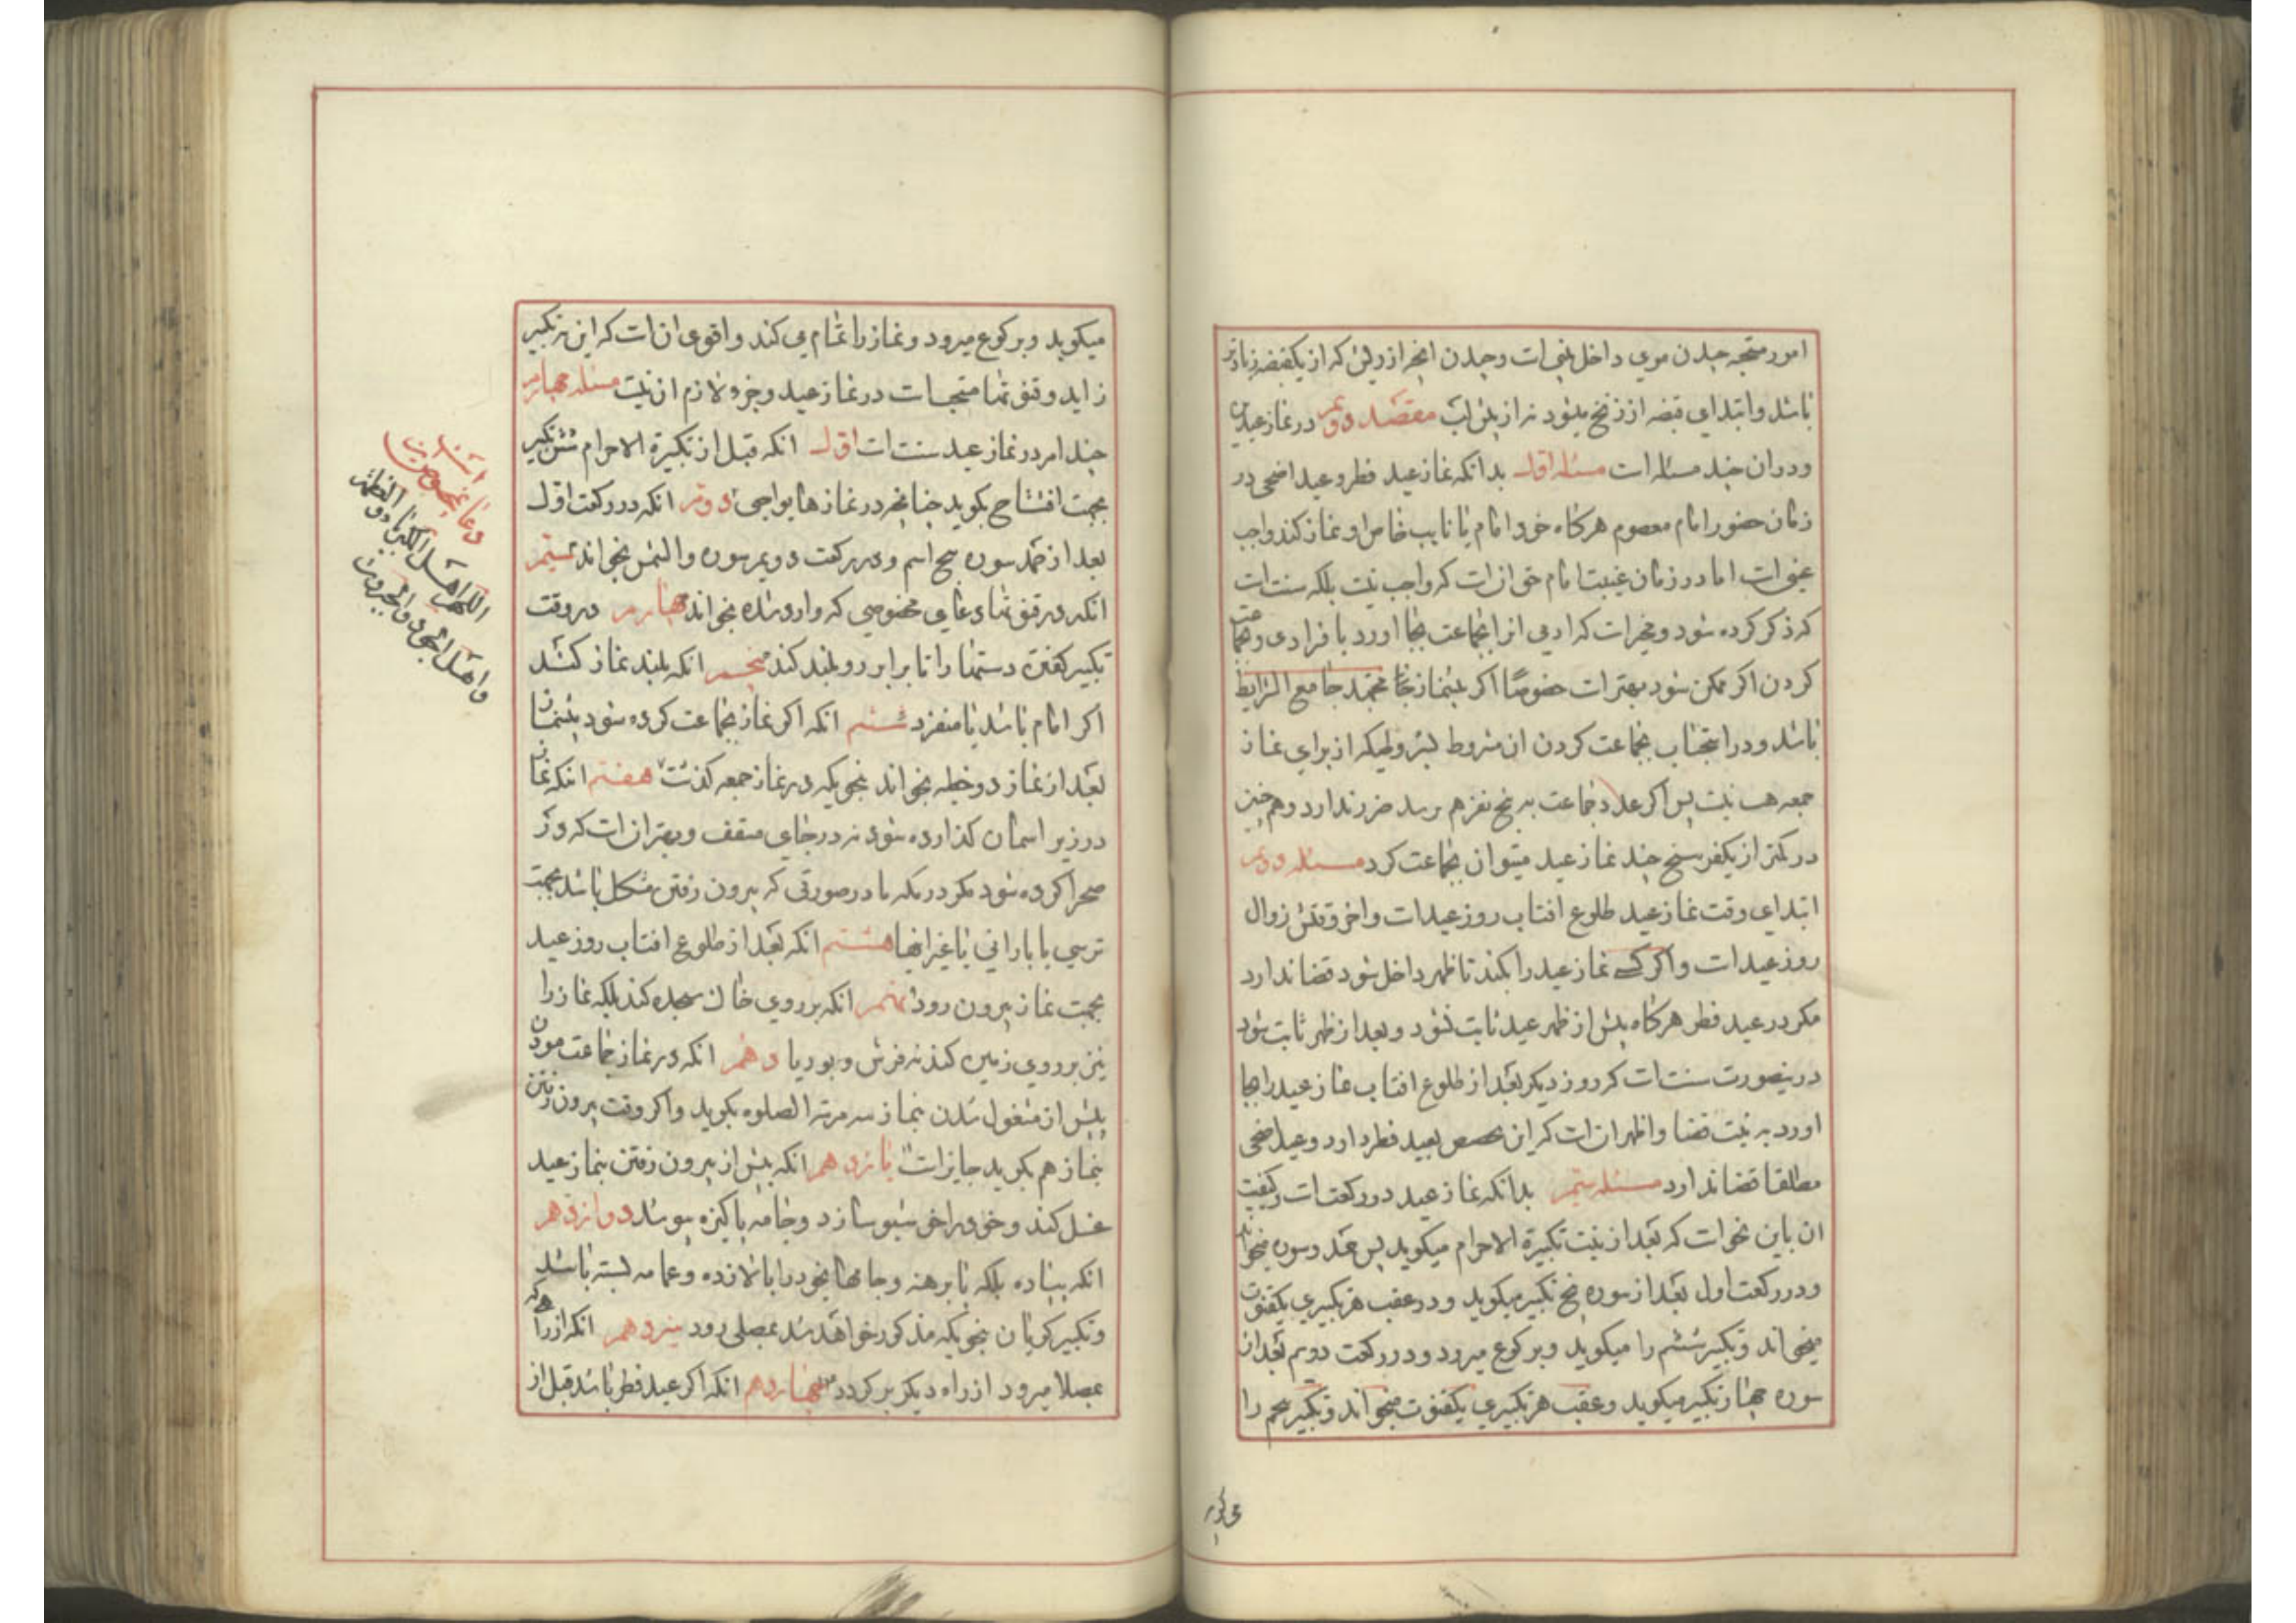 امور مستحبه چیدن موی داخل بینی است و چیدن انچه از ریش که از یکقبضه زیادتر
باشد و ابتدای قبضه از زنخ میشود نه از پیش لب مقصد دویم در نماز عیدین
و در ان چند مسئله است مسئله اول بدانکه نماز عید فطر و عید اضحی در
زمان حضور امام معصوم هرکاه خود امام یا نایب خاص او نماز کند واجب
عینی است اما در زمان غیبت امام حق ان است که واجب نیست بلکه سنت است
که ذکر کرده شود و مخیر است که ادمی انرا بجماعت بجا اورد یا فرادی و بجماعت
کردن اکر ممکن شود بهتر است خصوصا اکر پیشنماز مجتهد جامع الشرایط
باشد و در استحباب بجماعت کردن ان مشروط بشروطیکه از برای نماز
جمعه هست نیست پس اکر عدد جماعت به پنج نفر هم نرسد ضرر ندارد و هم چنین
در کمتر از یکفرسخ چند نماز عید میتوان بجماعت کرد مسئله دویم
ابتدای وقت نماز عید طلوع افتاب روز عید است و اخر وقتش زوال
روز عید است و اکر کسی نماز عید را نکند تا ظهر داخل شود قضا ندارد
مکر در عید فطر هرکاه پیش از ظهر عید ثابت نشود و بعد از ظهر ثابت شود
درینصورت سنت است که روز دیکر بعد از طلوع افتاب نماز عید را بجا
اورد به نیت قضا و اظهر ان است که این مخصص بعید فطر دارد و عید اضحی
مطلقا قضا ندارد مسئله سیم بدانکه نماز عید دو رکعت است و کیفیت
ان باین نحو است که بعد از نیت تکبیرة الاحرام میکوید پس حمد و سوره میخواند
و در رکعت اول بعد از سوره پنج تکبیر میکوید و در عقب هر تکبیری یکقنوت
میخواند و تکبیر ششم را میکوید و برکوع میرود و در رکعت دویم بعد از
سوره چهار تکبیر میکوید و عقب هر تکبیری یکقنوت میخواند و تکبیر پنجم را
می کوید
میکوید و برکوع میرود و نماز را تمام می کند و اقوی ان است که این نه تکبیر
زاید و قنوتها مستحب است در نماز عید و جزء لازم ان نیست مسئله چهارم
چند امر در نماز عید سنت است اول انکه قبل از تکبیرة الاحرام شش تکبیر
بجهت افتتاح بکوید چنانچه در نمازها یواجبی دویم انکه در رکعت اول
بعد از حمد سوره سبح اسم و در رکعت دویم سوره والشمس بخواند سیم
انکه در قنوتها دعای مخصوصی که وارد شده بخواند چهارم در وقت
تکبیر کفتن دستها را تا برابر رو بلند کند پنجم انکه بلند نماز کند
اکر امام باشد یا منفرد ششم انکه اکر نماز بجماعت کرده شود پیشنماز
بعد از نماز دو خطبه بخواند بنحویکه در نماز جمعه کذشت هفتم انکه نماز
در زیر اسمان کذارده شود نه در جای مسقف و بهتر ان است که در
صحرا کرده شود مکر در مکه یا در صورتی که بیرون رفتن مشکل باشد بجهت
ترسی یا بارانی یا غیر اینها هشتم انکه بعد از طلوع افتاب روز عید
بجهت نماز بیرون رود نهم انکه بر روی خاک سجده کند بلکه نماز را
نیز بر روی زمین کند نه فرش و بوریا دهم انکه در نماز جماعت موذن
پیش از مشغول شدن بنماز سه مرتبه الصلوه بکوید و اکر وقت بیرون رفتن
بنماز هم بکوید جایز است یازدهم انکه پیش از بیرون رفتن بنماز عید
غسل کند و خود را خوشبو سازد و جامه پاکیزه بپوشد دوازدهم
انکه پیاده بلکه پا برهنه و جامهای خود را بالا زده و عمامه بسته باشد
و تکبیر کویان بنحویکه مذکور خواهد شد بمصلی رود سیزدهم انکه از راهی که
بمصلا میرود از راه دیکر بر کردد چهاردهم انکه اکر عید فطر باشد قبل از
دعای مخصوص
اللهم اهل الکبریاء و العظمة
و اهل الجود و الجبروت